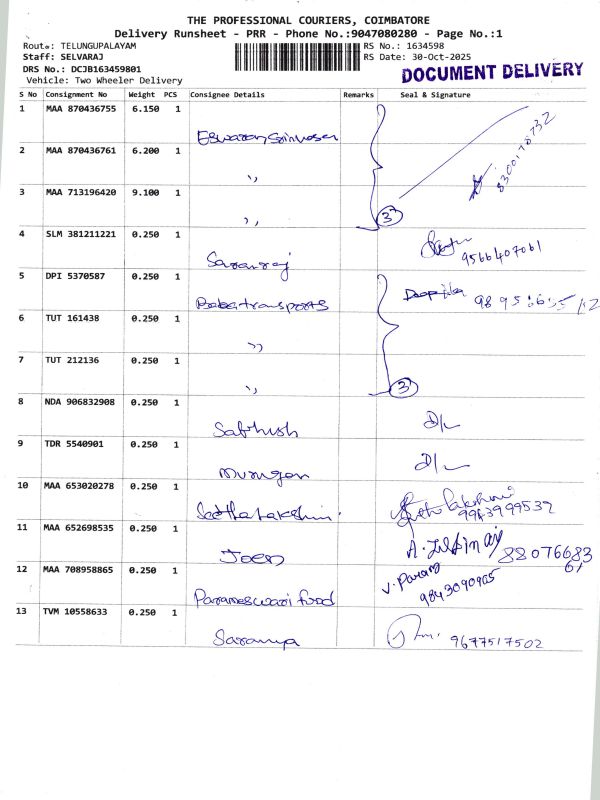 THE PROFESSIONAL COURIERS, COIMBATORE
Delivery Runsheet - PRR - Phone No.:9047080280 - Page No.:1
Route: TELUNGUPALAYAM
RS No.: 1634598
Staff: SELVARAJ
RS Date: 30-Oct-2025
DRS No.: DCJB163459801
DOCUMENT DELIVERY
Vehicle: Two Wheeler Delivery
S No Consignment No Weight PCS Consignee Details Remarks Seal & Signature
1 MAA 870436755 6.150 1
Eswaran Srinivasan
8300178732
2 MAA 870436761 6.200 1
,,
3 MAA 713196420 9.100 1
,,
3
4 SLM 381211221 0.250 1
Saranraj
9566407061
5 DPI 5370587 0.250 1
Baba transports
Deepika
6 TUT 161438 0.250 1
,,
7 TUT 212136 0.250 1
,,
3
8 NDA 906832908 0.250 1
Sabhush
D/L
9 TDR 5540901 0.250 1
Murugan
D/L
10 MAA 653020278 0.250 1
Seetha Lakshmi
9943999539
11 MAA 652698535 0.250 1
Joen
8807668361
12 MAA 708958865 0.250 1
Parameswari food
V. Param
9843090905
13 TVM 10558633 0.250 1
Saranya
9677517502